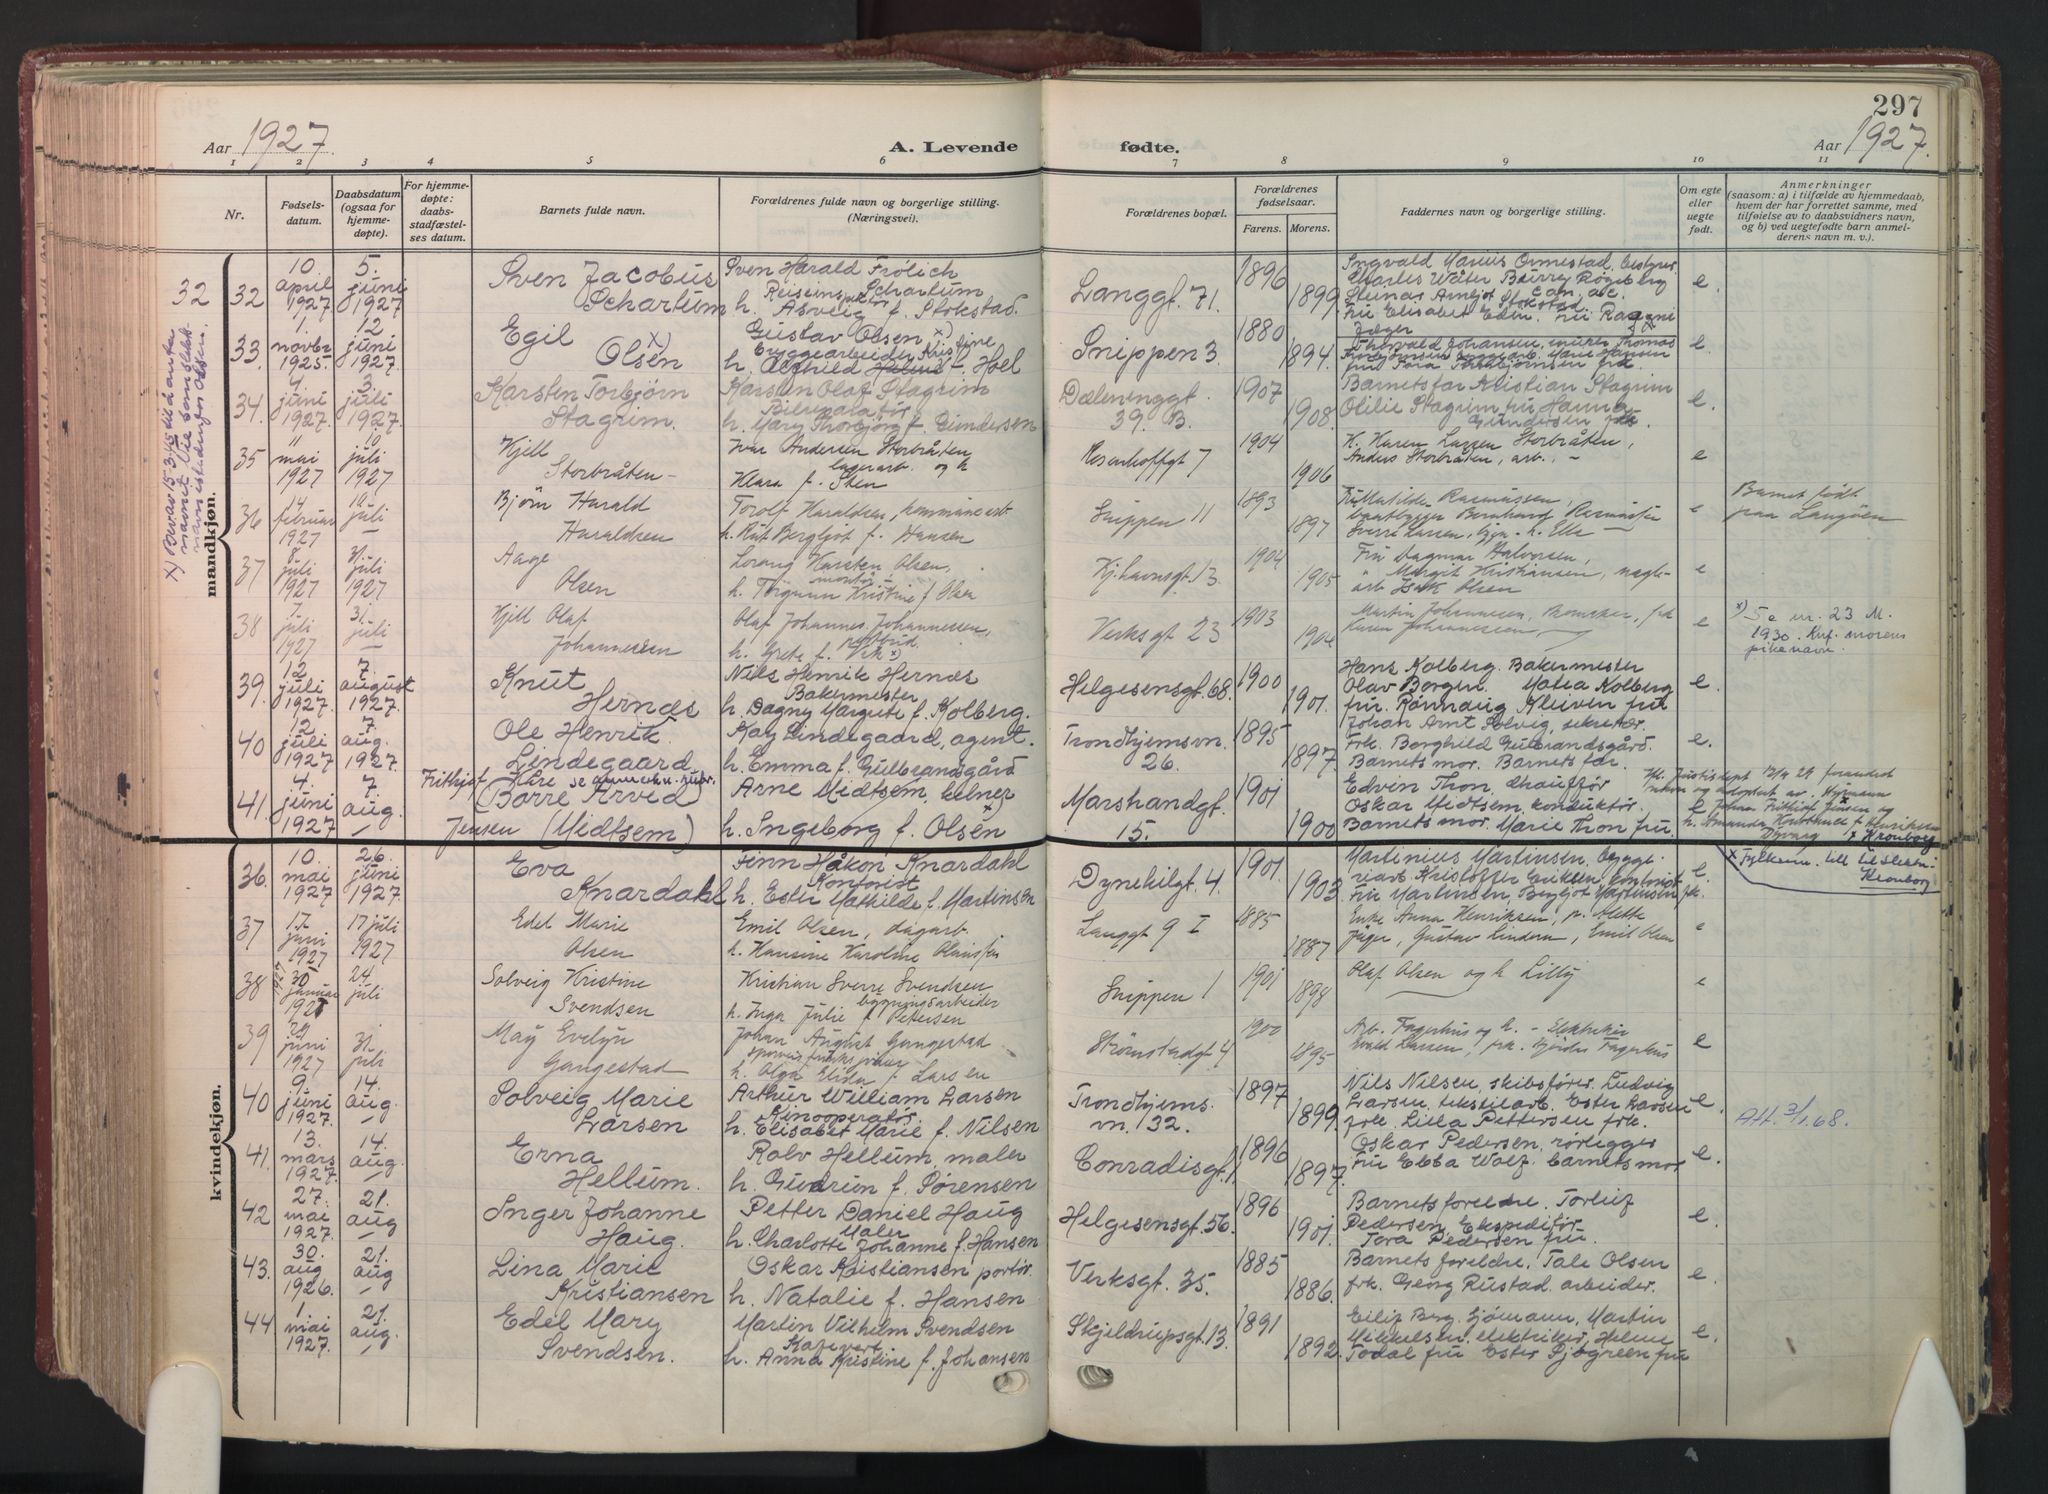 297
Aar 1927.
A. Levende
fødte.
Aar 1927.
1 2 3 4 5 6 7 8 9 10 11
Nr.
Fødsels-
datum.
Daabsdatum
(ogsaa for
hjemme-
døpte).
For hjemme-
døpte:
daabs-
stadfæstel-
ses datum.
Barnets fulde navn.
Forældrenes fulde navn og borgerlige stilling.
(Næringsvei).
Forældrenes bopæl.
Forældrenes
fødselsaar.
Farens. Morens.
Faddernes navn og borgerlige stilling.
Om egte
eller
uegte
født.
Anmerkninger
(saasom: a) i tilfælde av hjemmedaab,
hvem der har forrettet samme, med
tilføielse av to daabsvidners navn,
og b) ved uegtefødte barn anmel-
derens navn m. v.).
mandkjøn.
32
32 10. april 1927 5. juni 1927
Sven Jacobus
Schartum
Sven Harald Frölich
Schartum
h. Asveig f. Stokstad.
Langgt. 71
1896
1899
Ingvald Marius Ormestad
Fru Elisabet
e.
33. 1. novbr 1925. 12 juni 1927.
Egil
Olsen x)
Gustav Olsen x)
Bryggearbeider
h. Alfhild f. Hoel
Snippen 3.
1880
1894.
Thorvald Johansen
e
34. 4. juni 1927. 3. juli 1927.
Karsten Torbjørn
Stagrim.
Karsten Olaf Stagrim
h. Mary Thorbjørg f. Gundersen
Dælenenggt.
39. B.
1907
1908.
Barnets far Kristian Stagrim
Olilie Stagrim fru Hanna
Gundersen
e.
35 11 mai 1927 10 juli 1927
Kjell
Storbråten
Ivar Andersen Storbråten,
lagerarb. og h
Klara f. Sten
Rosenhoffgt 7
1904
1906
H. Karen Larsen Storbråten,
Anders Storbråten, arb.
e
36 14 februar 1927 10 juli
Bjørn Harald
Haraldsen
Torolf Haraldsen, kommunearb
h. Rut Bergljot f. Hansen
Snippen 11
1893
1897
Fru Matilde Rasmussen,
Bernhard Rasmussen
Sverre Larsen
e
Barnet født
paa Langöen
37 8. juli 1927 31. juli 1927
Aage
Olsen
Lorang Karsten Olsen,
montør
h. Torgunn Kristine f Olsen
Kj.havnsgt. 13
1904
1905
Fru Dagmar Halvorsen,
" Margit Kristiansen
arb Isak Olsen
e
38 7. juli 1927 31. juli
Kjell Olaf
Johannessen
Olaf Johannes Johannessen,
postbud
h. Grete f. Vik x)
Verksgt 23
1903
1904
Martin Johannessen
Karen Johannessen
e
x) Se nr. 23 M.
1930. morens
pikenavn.
39. 12 juli 1927. 7. august 1927.
Knut
Hernæs
Nils Henrik Hernæs
Bakermester
h. Dagny Margrete f. Kolberg.
Helgesensgt. 68.
1900
1901.
Hans Kolberg. Bakermester
Olav Borgen Matea Kolberg
fru. Rønnaug Kleiven fru
e.
40 12 juli 1927 7 aug. 1927.
Ole Henrik
Lindegaard.
Kay Lindegaard, agent.
h. Emma f. Gulbrandsgård
Trondhjemsvn.
26.
1895
1897.
Johan Arnt Solvig, sekretær
Frk. Borghild Gulbrandsgård.
Barnets mor. Barnets far.
e.
41. 4. juni 1927 7. aug.
Frithjof Kåre
(Børre Arvid)
Jensen (Midtsem)
Arne Midtsem, kelner
h. Ingeborg f. Olsen
Marshandgt.
15.
1901
1900
Edvin Thon, chauffør
Oskar Midtsem, konduktør.
Barnets mor. Marie Thon fru
e
Johan Frithjof Jensen og
h. Amanda f. Henriksen
x Kronborg
kvindekjøn.
36. 10. mai 1927 26. juni 1927
Eva
Knardahl
Finn Håkon Knardahl
Kontorist
h. Ester Mathilde f. Martinsen
Dynekilgt. 4.
1901.
1903
Martinius Martinsen, bygge-
Kristoffer Eriksen, kontorist
Fru Martinsen, Bergljot Martinsen frk.
e.
37 17. juni 1927 17 juli 1927
Edel Marie
Olsen
Emil Olsen, dagarb.
h. Hansine Karoline
Langgt 9 I
1885
1887
Enke Anna Henriksen,
Jäger, Gustav Lindern, Emil Olsen
e
38 30 januar 1927 24. juli
Solveig Kristine
Svendsen
Kristian Sverre Svendsen
bygningsarbeider
h. Inga Julie f Pettersen
Snippen 1
1901
1898
Olaf Olsen og h. Lilly
e
39 juni 1927 31. juli
May Evelyn
Gangestad
Johan August Gangestad
h. Olga Elida f Larsen
Strømstadgt 4
1900
1895
Arb. Fagerhus og h. - Elektriker
Evald Larsen, frk. Fagerhus
e
40 9. juni 1927. 14. aug.
Solveig Marie
Larsen
Arthur William Larsen
Kinooperatør
h. Elisabet Marie f. Nilsen
Trondhjems-
vn. 132.
1897
1899
Nils Nilsen, skibsfører. Ludvig
Larsen, tekstilarb. Ester Larsen
frk. Lilla Pettersen frk.
e.
Att. 3/1.68.
41. 13. mars 1927. 14. aug.
Erna
Hellum.
Rolv Hellum, maler
h. Gudrun f. Sørensen
Conradisgt. 1
1896
1897.
Oskar Pedersen, rørlegger
Fru Ebba Wolf. barnets mor
e.
42 27. mai 1927. 21. aug
Inger Johanne
Haug.
Petter Daniel Haug
Maler
h. Charlotte Johanne f. Hansen
Helgesensgt. 56.
1896
1901.
Barnets foreldre. Torleif
Pedersen, Ekspeditør.
Tora Pedersen fru.
e.
43. 30. aug 1926. 21. aug
Lina Marie
Kristiansen
Oskar Kristiansen portør.
h. Natalie f. Hansen
Verksgt. 35.
1885
1886.
Barnets foreldre, Tale Olsen
frk. Georg Rustad. arbeider.
e.
44. 1. mai 1927. 21. aug.
Edel Mary
Svendsen.
Martin Vilhelm Svendsen
Kafévert
h. Anna Kristine f. Johansen
Skjeldrupsgt. 13.
1891
1892.
Eilif Berg. sjømann, Martin
Mikkelsen, elektriker, Helene
Todal fru Ester Sjøgreen fru
e.